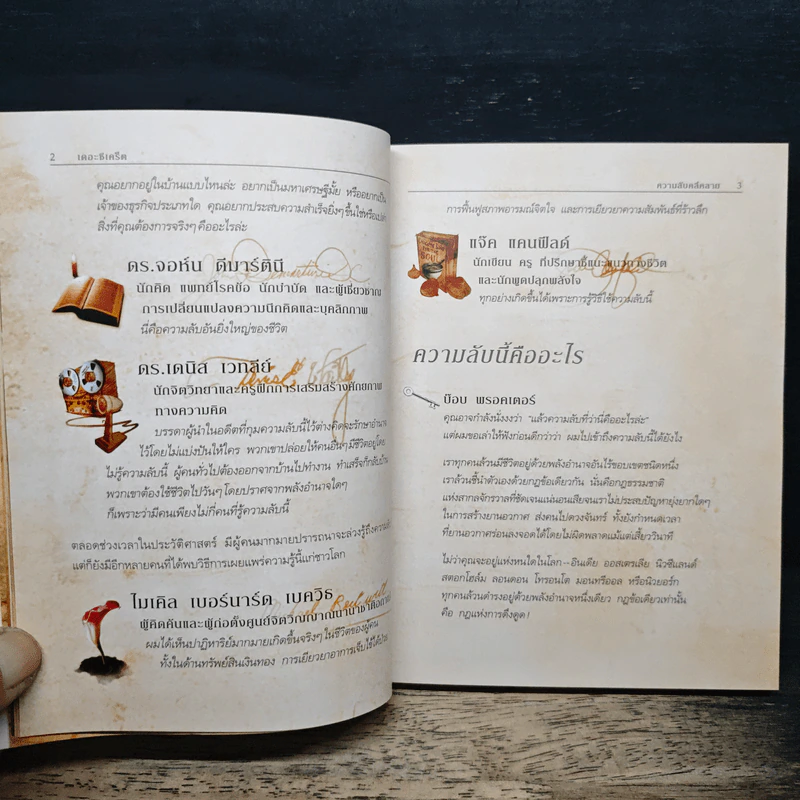 2 เดอะซีเคร็ต
คุณอยากอยู่ในบ้านแบบไหนล่ะ อยากเป็นมหาเศรษฐีมั้ย หรืออยากเป็น
เจ้าของธุรกิจประเภทใด คุณอยากประสบความสำเร็จยิ่งๆ ขึ้นใช่หรือเปล่า
สิ่งที่คุณต้องการจริงๆ คืออะไรล่ะ
ดร.จอห์น ดีมาร์ตินี
นักคิด แพทย์โรคข้อ นักบำบัด และผู้เชี่ยวชาญ
การเปลี่ยนแปลงความนึกคิดและบุคลิกภาพ
นี่คือความลับอันยิ่งใหญ่ของชีวิต
ดร.เดนิส เวทลีย์
นักจิตวิทยาและครูฝึกการเสริมสร้างศักยภาพ
ทางความคิด
บรรดาผู้นำในอดีตที่กุมความลับนี้ไว้ต่างคิดจะรักษาอำนาจ
ไว้โดยไม่แบ่งปันให้ใคร พวกเขาปล่อยให้คนอื่นๆ มีชีวิตอยู่โดย
ไม่รู้ความลับนี้ ผู้คนทั่วไปต้องออกจากบ้านไปทำงาน ทำเสร็จก็กลับบ้าน
พวกเขาต้องใช้ชีวิตไปวันๆ โดยปราศจากพลังอำนาจใดๆ
ก็เพราะว่ามีคนเพียงไม่กี่คนที่รู้ความลับนี้
ตลอดช่วงเวลาในประวัติศาสตร์ มีผู้คนมากมายปรารถนาจะล่วงรู้ถึงความลับ
แต่ก็ยังมีอีกหลายคนที่ได้พบวิธีการเผยแพร่ความรู้นี้แก่ชาวโลก
ไมเคิล เบอร์นาร์ด เบควิธ
ผู้คิดค้นและผู้ก่อตั้งศูนย์จิตวิญญาณนานาชาติอกาเป
ผมได้เห็นปาฏิหาริย์มากมายเกิดขึ้นจริงๆ ในชีวิตของผู้คน
ทั้งในด้านทรัพย์สินเงินทอง การเยียวยาอาการเจ็บไข้ได้ป่วย
ความลับคลี่คลาย 3
การฟื้นฟูสภาพอารมณ์จิตใจ และการเยียวยาความสัมพันธ์ที่ร้าวลึก
แจ๊ค แคนฟีลด์
นักเขียน ครู ที่ปรึกษาชี้แนะแนวทางชีวิต
และนักพูดปลุกพลังใจ
ทุกอย่างเกิดขึ้นได้เพราะการรู้วิธีใช้ความลับนี้
ความลับนี้คืออะไร
บ๊อบ พรอคเตอร์
คุณอาจกำลังนั่งงงว่า "แล้วความลับที่ว่านี่คืออะไรล่ะ"
แต่ผมขอเล่าให้ฟังก่อนดีกว่าว่า ผมไปเข้าถึงความลับนี้ได้ยังไง
เราทุกคนล้วนมีชีวิตอยู่ด้วยพลังอำนาจอันไร้ขอบเขตชนิดหนึ่ง
เราล้วนชี้นำตัวเองด้วยกฎข้อเดียวกัน นั่นคือกฎธรรมชาติ
แห่งสากลจักรวาลที่ชัดเจนแน่นอนเสียจนเราไม่ประสบปัญหายุ่งยากใดๆ
ในการสร้างยานอวกาศ ส่งคนไปดวงจันทร์ ทั้งยังกำหนดเวลา
ที่ยานอวกาศร่อนลงจอดได้โดยไม่ผิดพลาดแม้แต่เสี้ยววินาที
ไม่ว่าคุณจะอยู่แห่งหนใดในโลก—อินเดีย ออสเตรเลีย นิวซีแลนด์
สตอกโฮล์ม ลอนดอน โทรอนโต มอนทรีออล หรือนิวยอร์ก
ทุกคนล้วนดำรงอยู่ด้วยพลังอำนาจหนึ่งเดียว กฎข้อเดียวเท่านั้น
คือ กฎแห่งการดึงดูด!